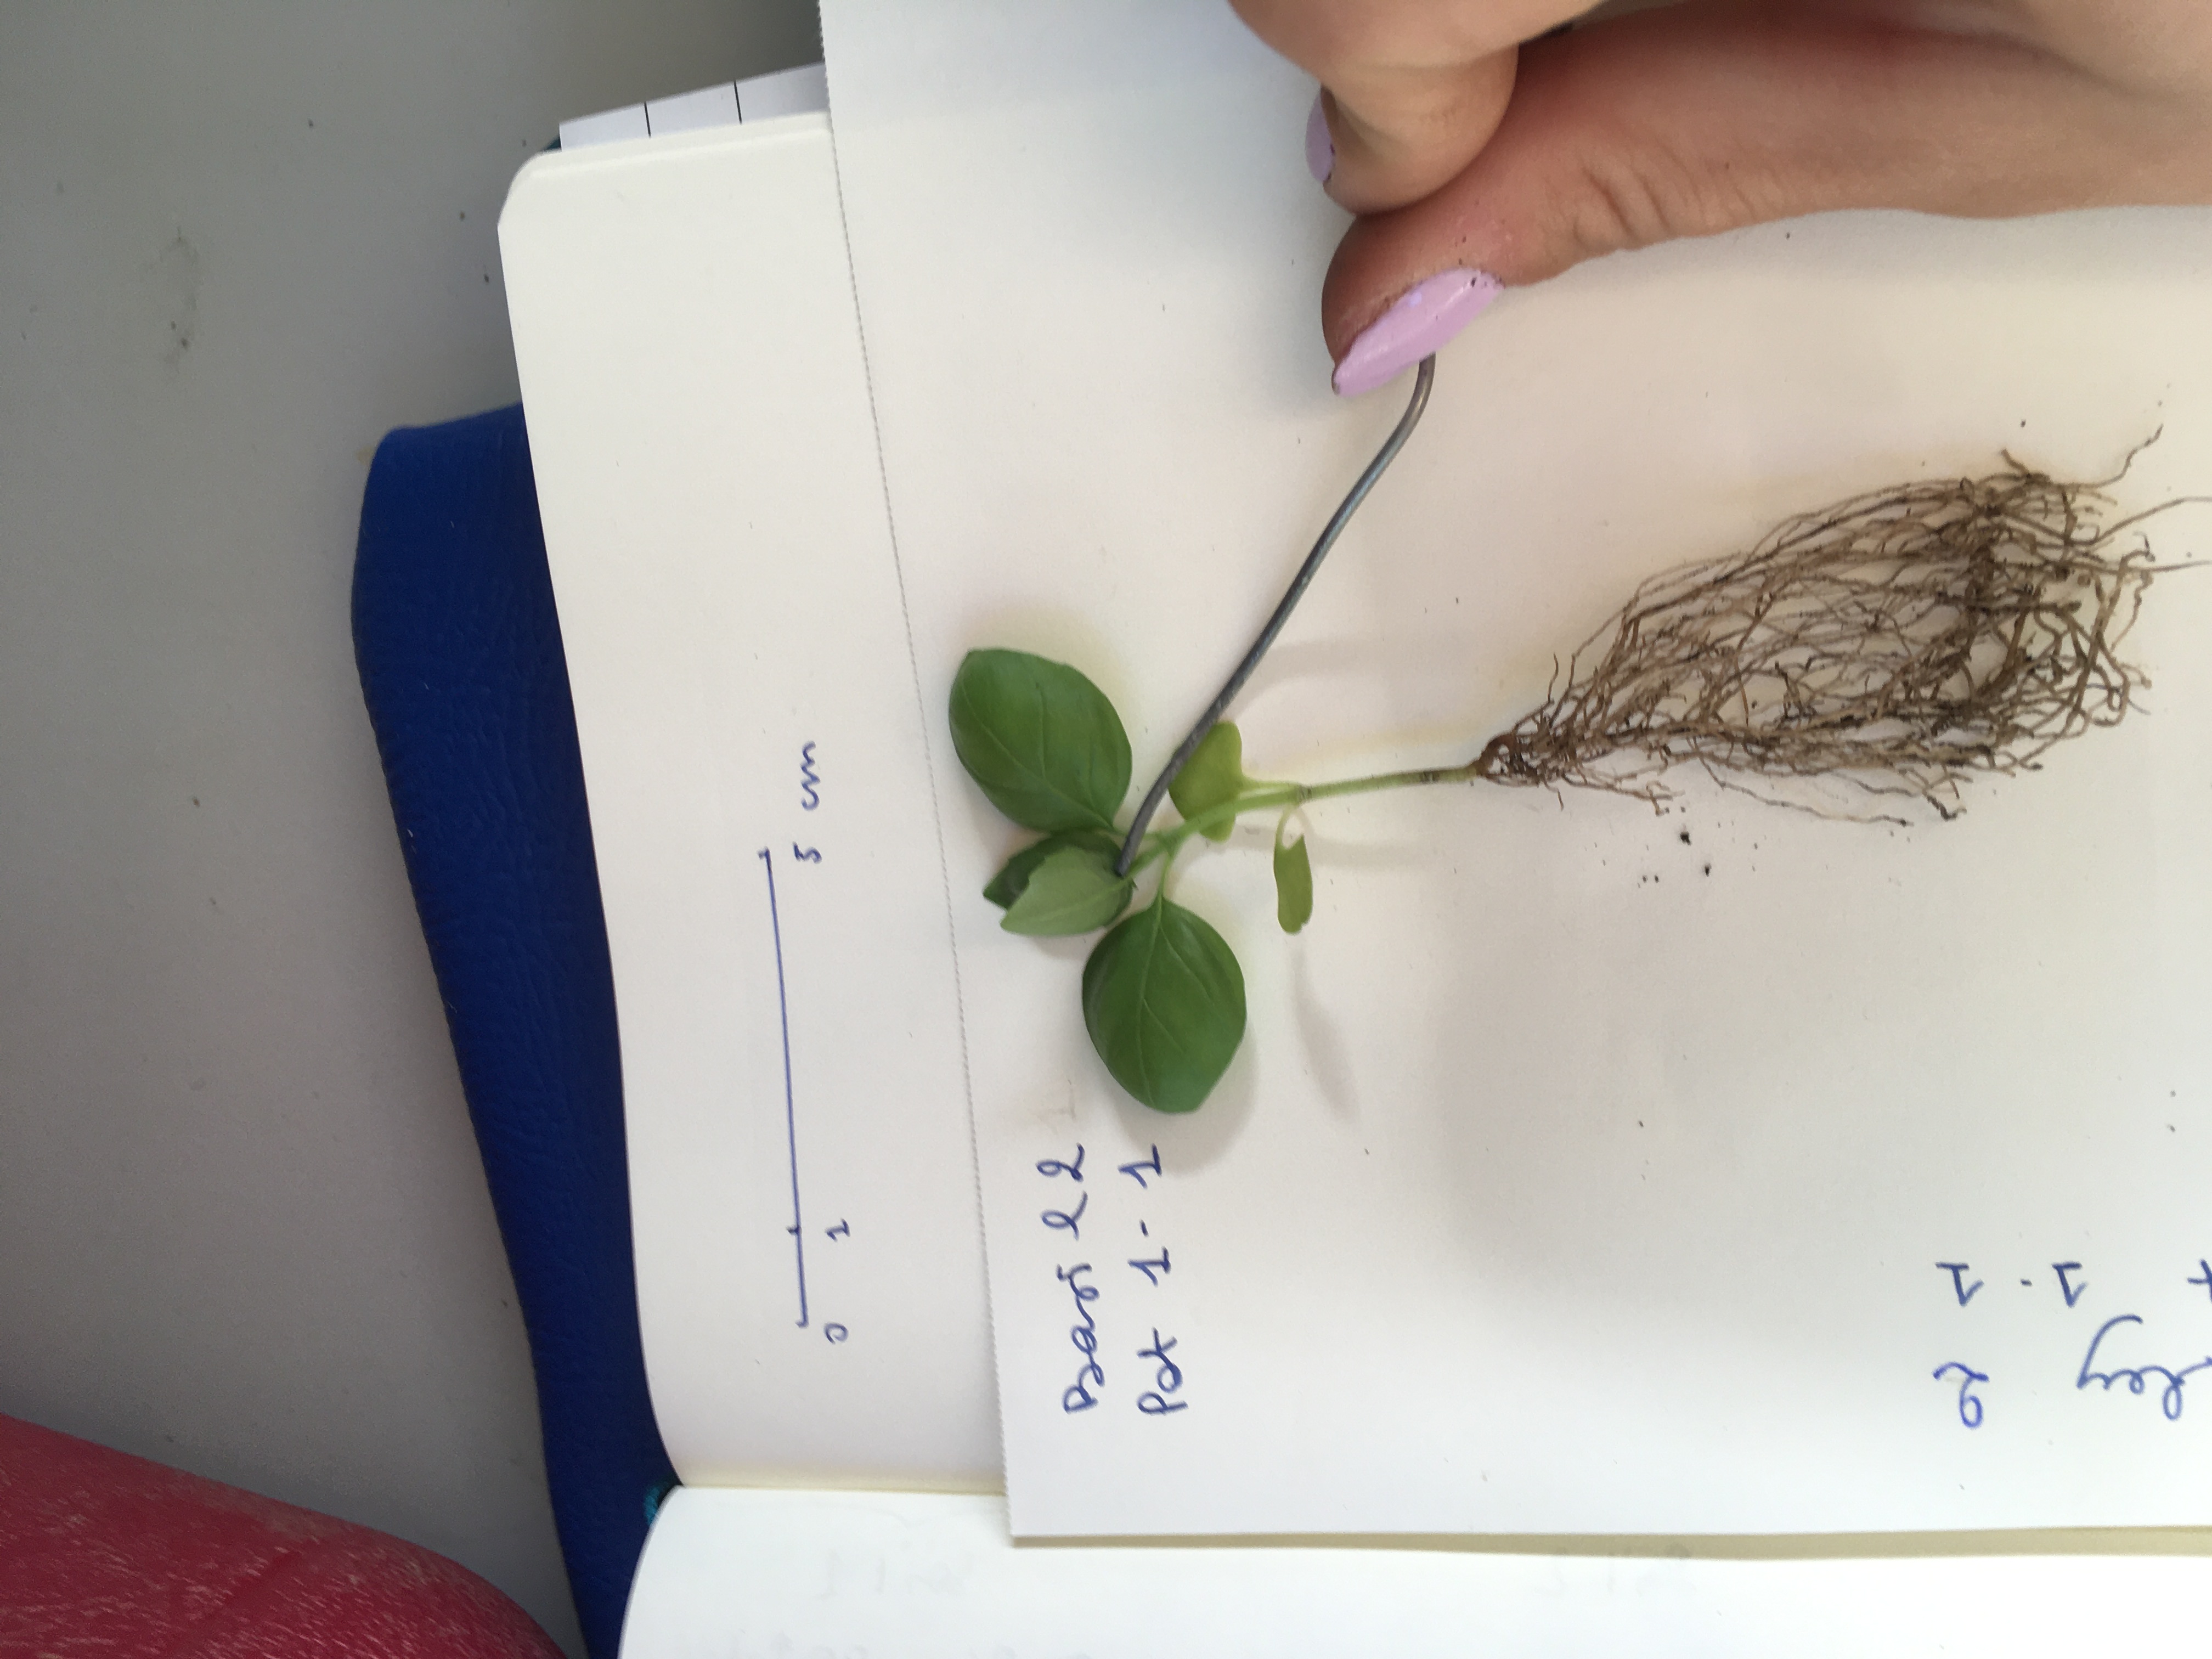 0 1 5 cm
Basil 2
Pot 1-1
ley 2
1-1